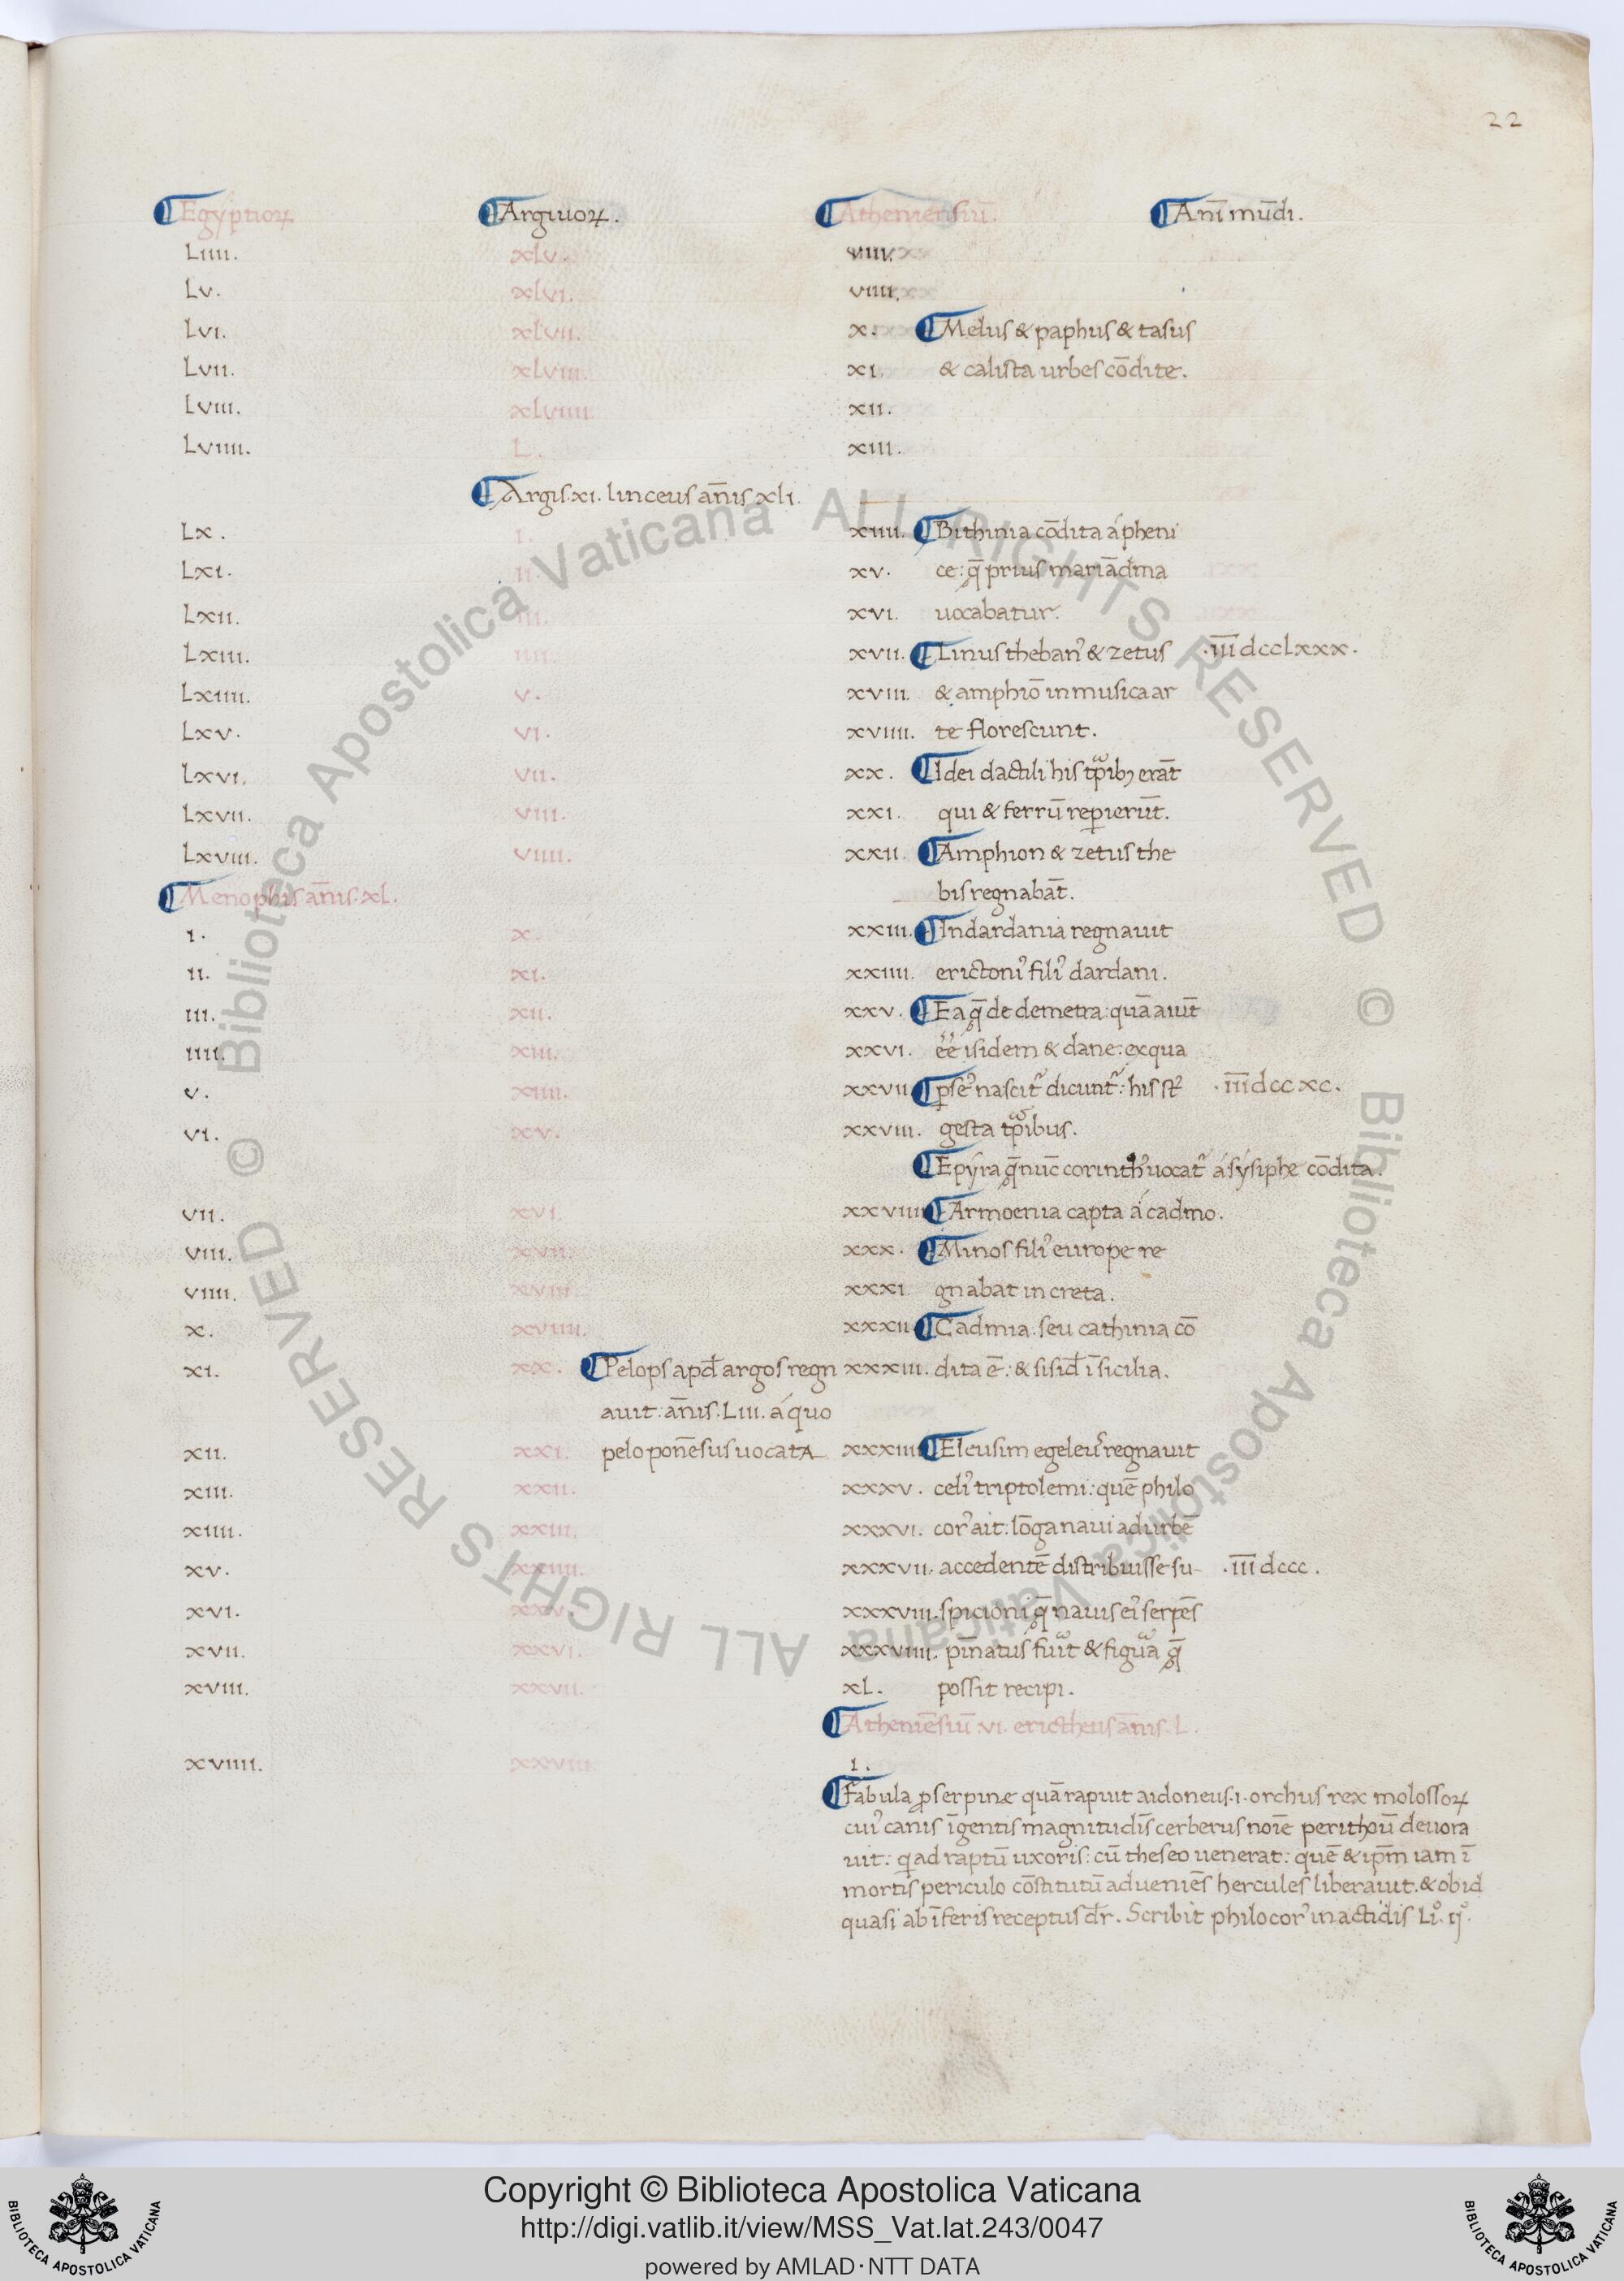 22
Egyptioꝝ Argiuoꝝ. Atheniensiū. Anī mūdi.
Liiii. xlv. viiii.
Lv. xlvi. viiii.
Lvi. xlvii. x. Melus & paphus & tasus
Lvii. xlviii. xi. & calista urbes cōdite.
Lviii. xlviiii. xii.
Lviiii. L. xiii.
Argis.xi. linceus an̄is xli.
Lx. i. xiiii. Bithinia cōdita á pheni
Lxi. ii. xv. ce: q̄ prius mariādma
Lxii. iii. xvi. uocabatur.
Lxiii. iiii. xvii. Linus theban᾿ & zetus .iīi dcclxxx.
Lxiiii. v. xviii. & amphiō in musica ar
Lxv. vi. xviiii. te florescunt.
Lxvi. vii. xx. Idei dactili his tp̄ib; erāt
Lxvii. viii. xxi. qui & ferrū repierūt.
Lxviii. viiii. xxii. Amphion & zetus the
Menophis an̄is.xl. bis regnabāt.
i. x. xxiii. In dardania regnauit
ii. xi. xxiiii. erictoni᾿ fili᾿ dardani.
iii. xii. xxv. Ea q̄ de demetra: quā aiūt
iiii. xiii. xxvi. éé isidem & dane: ex qua
v. xiiii. xxvii ꝑse᾿ nascit᾿ dicunt᾿: his st᾿ .iīi dccxc.
vi. xv. xxviii. gesta tp̄ibus.
Epýra q̄ nūc corinth᾿ uocat᾿ á sýsiphe cōdita.
vii. xvi. xxviiii Armoenia capta á cadmo.
viii. xvii. xxx. Minos fili᾿ europe re
viiii. xviii. xxxi. gnabat in creta.
x. xviiii. xxxii Cadmia. seu cathinia cō
xi. xx. Pelops apd̄ argos regn xxxiii. dita ē: & sisid̄ ī sicilia.
auit: an̄is.Liii. á quo
xii. xxi. peloponēsus uocata xxxiiii Eleusim egeleu᾿ regnauit
xiii. xxii. xxxv. celi᾿ triptolemi: quē philo
xiiii. xxiii. xxxvi. cor᾿ ait: lōga naui ad urbē
xv. xxiiii. xxxvii. accedentē distribuisse su- .iīi dccc.
xvi. xxv. xxxviii. spicioni q̄ nauis ei᾿ serpēs
xvii. xxvi. xxxviiii. pin̄atus fuīt & figuā q̄
xviii. xxvii. xl. possit recipi.
Atheniēsiū vi. erictheus an̄is.L.
xviiii. xxviii. i.
Fabula ꝓserpinæ quā rapuit aidoneus.i. orchus rex molossoꝝ
cui᾿ canis īgentis magnitudīs cerberus noīe perithoū deuora
uit: q ad raptū uxoris: cū theseo uenerat: quē & ip̄m iam ī
mortis periculo cōstitutū adueniēs hercules liberauit. & obid
quasi ab īferis receptus dr̄. Scribit philocor᾿ in actidis Li°. ij°.
Copyright © Biblioteca Apostolica Vaticana
http://digi.vatlib.it/view/MSS_Vat.lat.243/0047
powered by AMLAD·NTT DATA
BIBLIOTECA APOSTOLICA VATICANA
BIBLIOTECA APOSTOLICA VATICANA
© Biblioteca Apostolica Vaticana ALL RIGHTS RESERVED
© Biblioteca Apostolica Vaticana ALL RIGHTS RESERVED